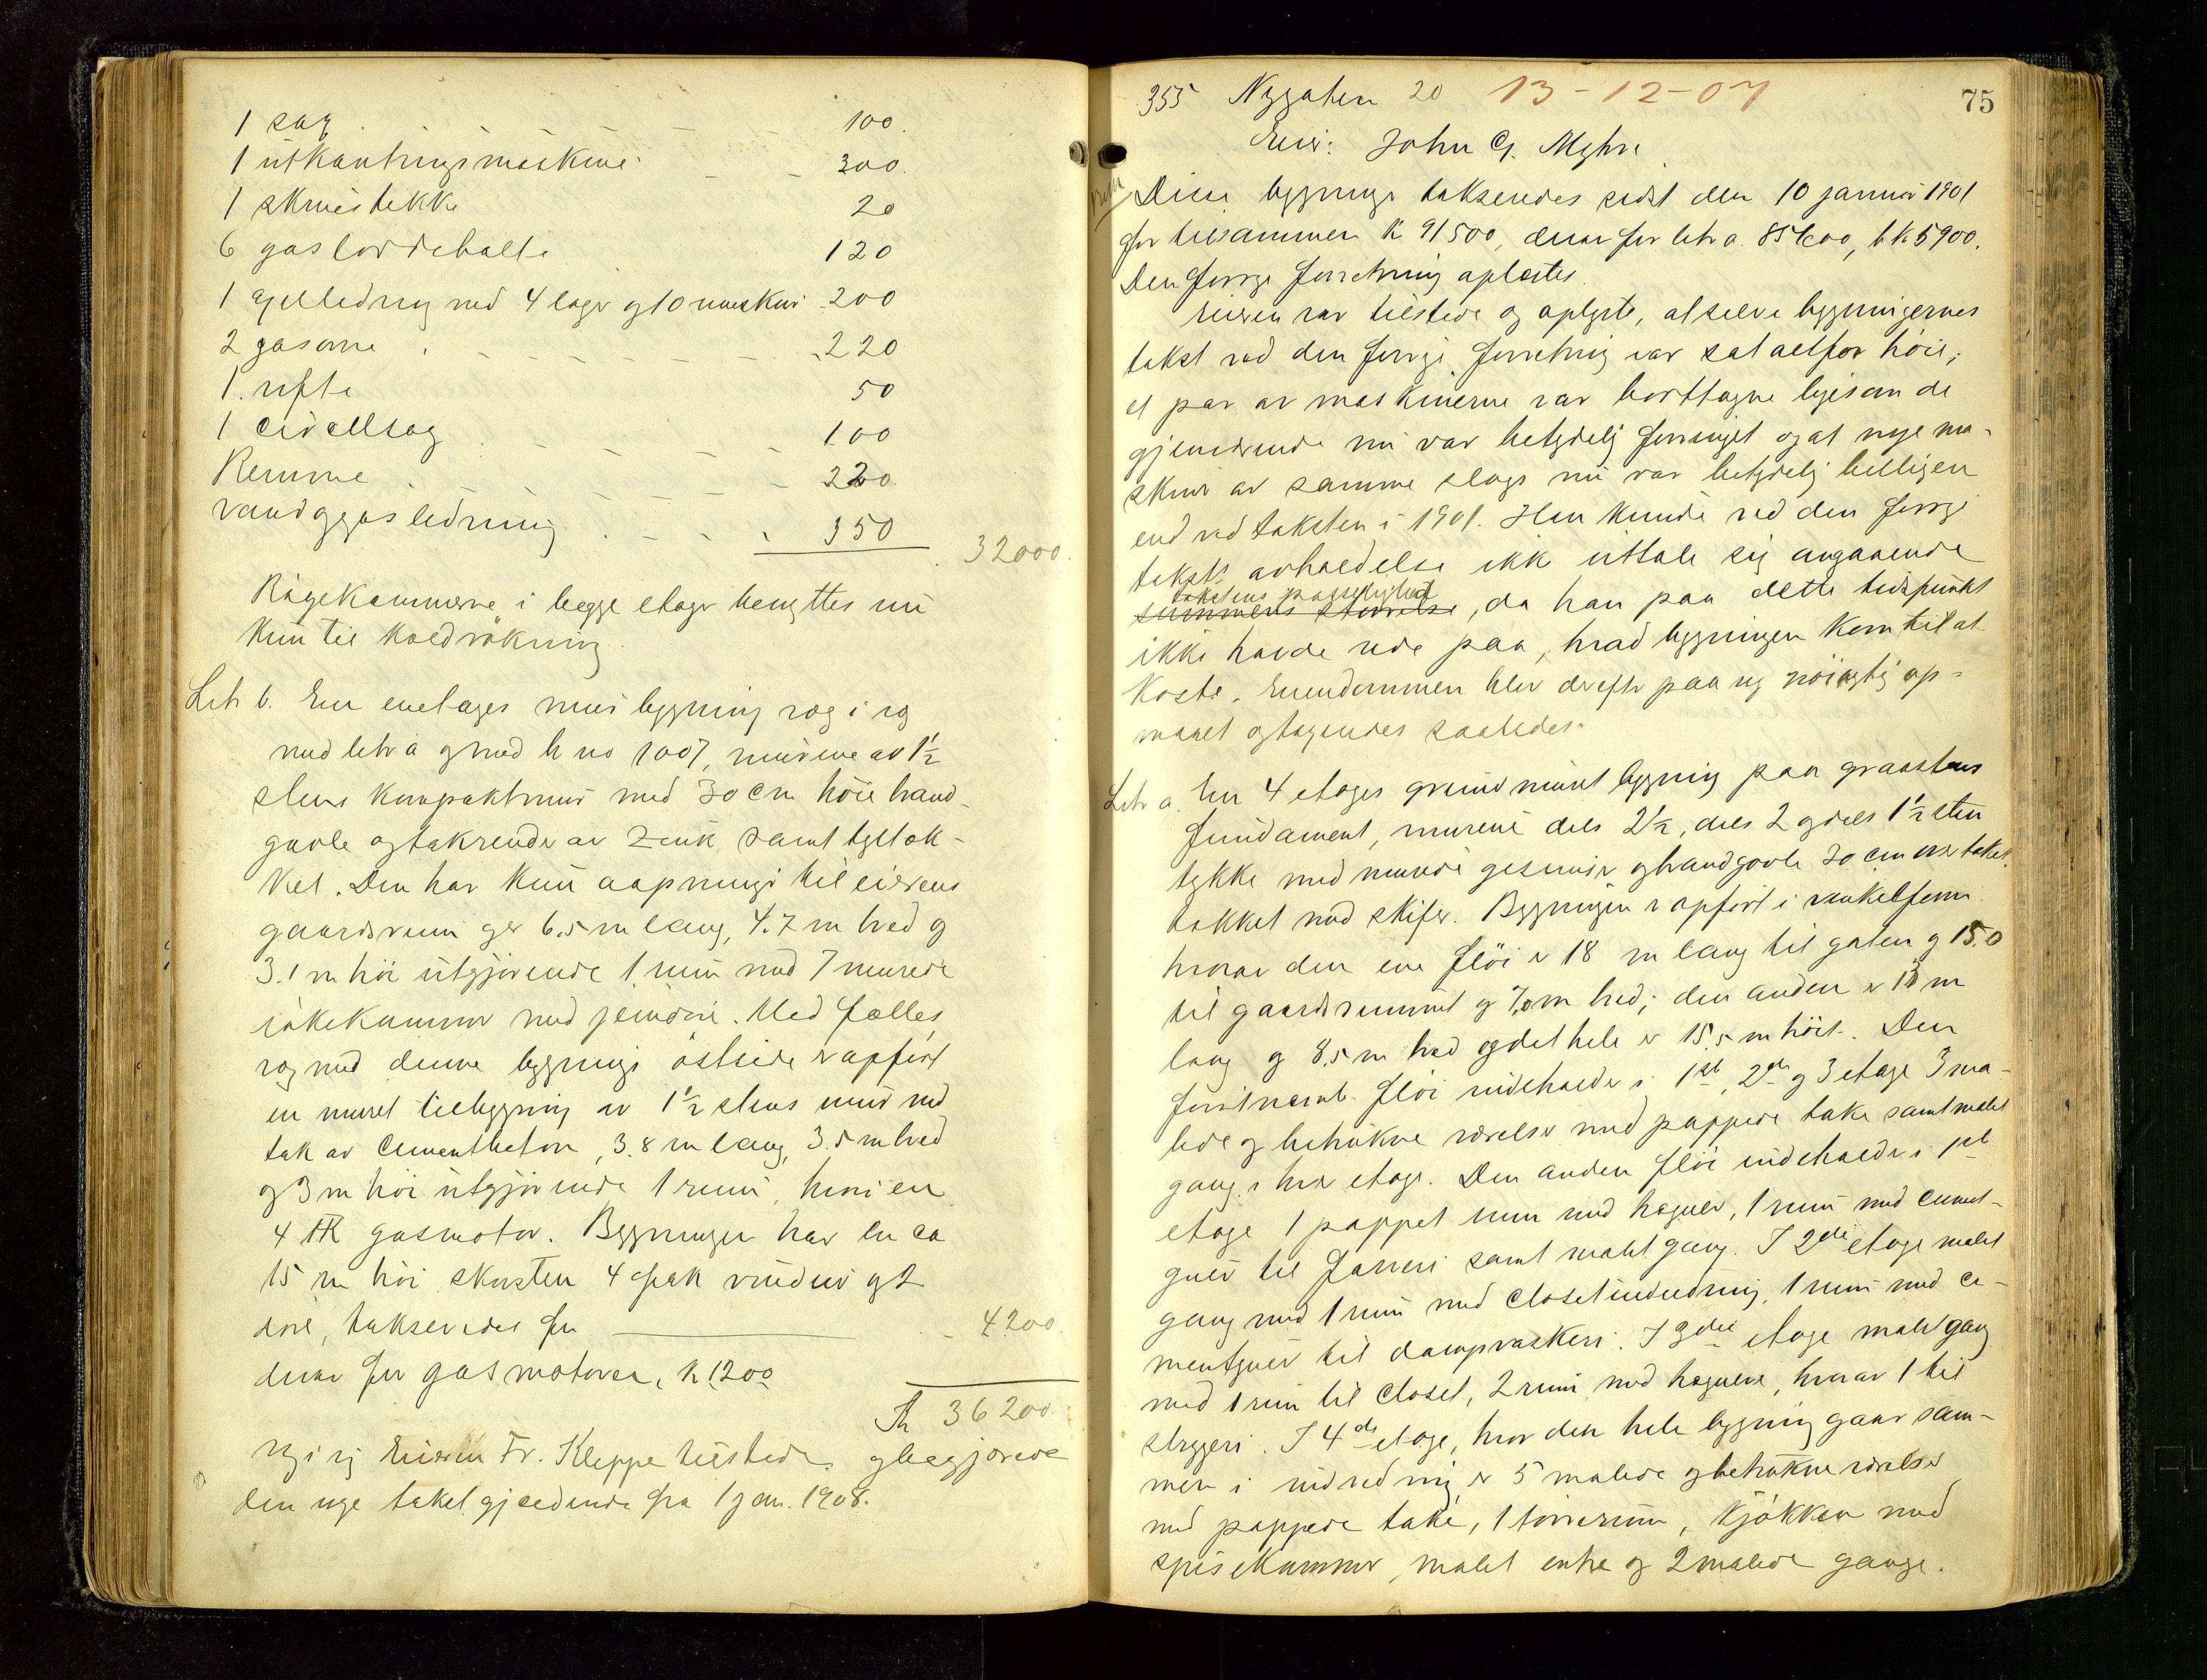 1 sag 100.
1 utkantningsmaskine 300.
1 skruestikke 20
6 gasloddebolte 120
1 axelledning med 4 lager og 10 rem skiver 200
2 gasovne 220
1 vifte 50
1 cirkelsag 100
Remme 220
vand og gasledning 350
32000.
Røgekammerne i begge etager benyttes nu
kun til koldrøkning.
Litr b. En enetages murbygning væg i væg
med litr a og med br no 1007, murene av 1½
stens kompaktmur med 30 cm høie brand-
gavle og takrender av zink samt tegltæk-
ket. Den har kun aapninger til eierens
gaardsrum og er 6.5 m lang, 4.7 m bred og
3.1 m høi utgjørende 1 rum med 7 murede
røkekammer med jerndøre. Med fælles
væg med denne bygnings østside er opført
en muret tilbygning av 1½ stens mur med
tak av cementbeton, 3.8 m lang, 3.5 m bred
og 3 m høi utgjørende 1 rum, hvori en
4 HK gasmotor. Bygningen har en ca
15 m høi skorsten 4 fak vinduer og 2
døre, takseredes for 4200.
derav for gasmotoren, k 1200
Kr 36200.
Eieren Fr. Kleppe tilstede og begjærede
den nye takst gjældende fra 1 jan. 1908.
75
355 Nygaten 20 13-12-07
Eier: John G. Myhre
Disse bygninger takseredes sidst den 10 januar 1901
for tilsammen k 91500, derav for litr a. 85600, b k 5900.
Den forrige forretning oplæstes.
Eieren var tilstede og oplyste, at selve bygningernes
takst ved den forrige forretning var sat altfor høit;
et par av maskinerne var borttagne ligesom de
gjenværende nu var betydelig forringet og at nye ma-
skiner av samme slags nu var betydelig billigere
end ved taksten i 1901. Han kunde ved den forrige
taksts avholdelse ikke uttale sig angaaende
takstens passelighed
summens størrelse, da han paa dette tidspunkt
ikke havde rede paa, hvad bygningen kom til at
koste. Eiendommen blev derefter paa ny nøiagtig op-
maalt og taxeredes saaledes:
Litr a. En 4 etages grundmuret bygning paa graastens
fundament, murene dels 2½, dels 2 og dels 1½ sten
tykke med murede gesimser og brandgavle 30 cm over taket.
tækket med skifer. Bygningen er opført i vinkelform
hvorav den ene fløi er 18 m lang til gaten og 15.0
til gaardsrummet og 7.0 m bred; den anden er 13 m
lang og 8.5 m bred og det hele er 15.5 m høit. Den
førstnævnte fløi indeholder i 1ste, 2den og 3 etage 3 ma-
lede og betrukne værelser med pappede take samt malet
gang i hver etage. Den anden fløi indeholder i 1ste
etage 1 pappet rum med trægulv, 1 rum med cement-
gulv til farveri samt malet gang. I 2den etage malet
gang med 1 rum med closetindredning, 1 rum med ce-
mentgulv til dampvaskeri. I 3die etage malet gang
med 1 rum til closet, 2 rum med trægulve, hvorav 1 til
strygeri. I 4de etage, hvor den hele bygning gaar sam-
men i indredning er 5 malede og betrukne værelser
med pappede take, 1 tørrerum, kjøkken med
spisekammer, malet entre og 2 malede gange.